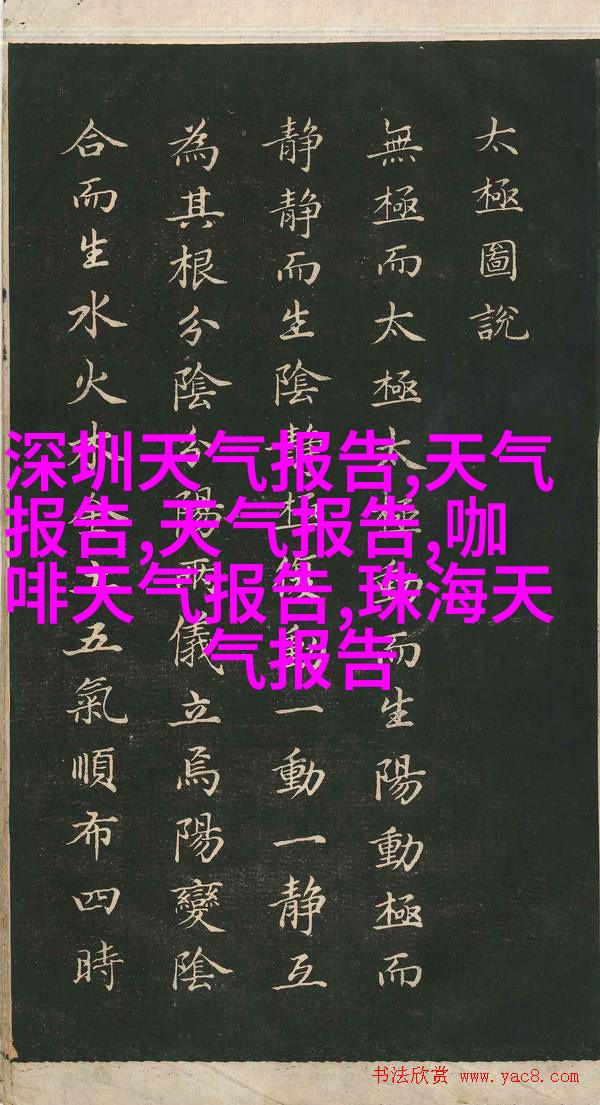 太極圖說
無極而太極太極動而生陽動極而
静静而生陰静極復動一動一静互
為其根分陰分陽兩儀立焉陽變陰
合而生水火木金土五氣順布四時
深圳天气报告,天气
报告,天气报告,咖
啡天气报告,珠海天
气报告
书法欣赏 www.yac8.com